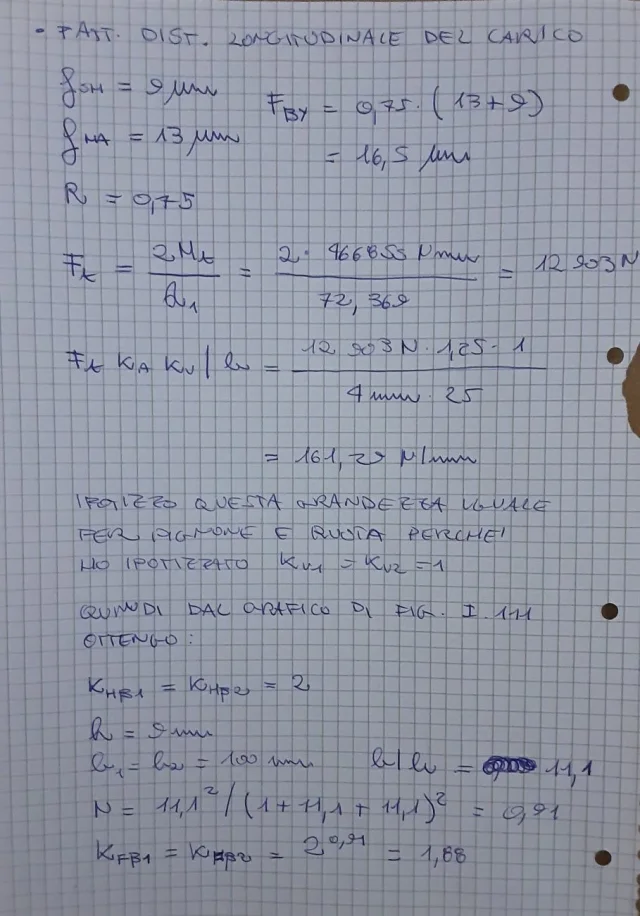 • FATT. DIST. LONGITUDINALE DEL CARICO
fSH = 9 μm
FBY = 0,75 · (13+9)
fMA = 13 μm
= 16,5 μm
R = 0,75
Ft = 2Mt / d1 = 2 · 466855 Nmm / 72,369 = 12903 N
Ft KA KV / b = 12903 N · 1,25 · 1 / 4mm · 25
= 161,29 N/mm
IPOTIZZO QUESTA GRANDEZZA UGUALE
PER PIGNONE E RUOTA PERCHE'
HO IPOTIZZATO KV1 = KV2 = 1
QUINDI DAL GRAFICO DI FIG. I.111
OTTENGO:
KHB1 = KHB2 = 2
h = 9 mm
b1 = b2 = 100 mm b/h = 11,1
N = 11,1² / (1 + 11,1 + 11,1)² = 0,91
KFB1 = KFB2 = 2^0,91 = 1,88